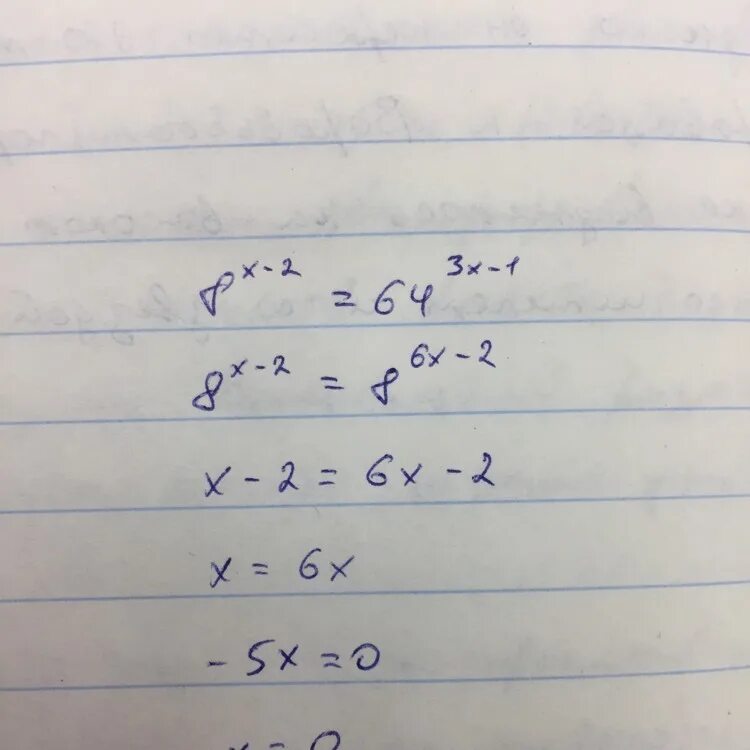 8^{x-2} = 64^{3x-1}
8^{x-2} = 8^{6x-2}
x - 2 = 6x - 2
x = 6x
- 5x = 0
x = 0